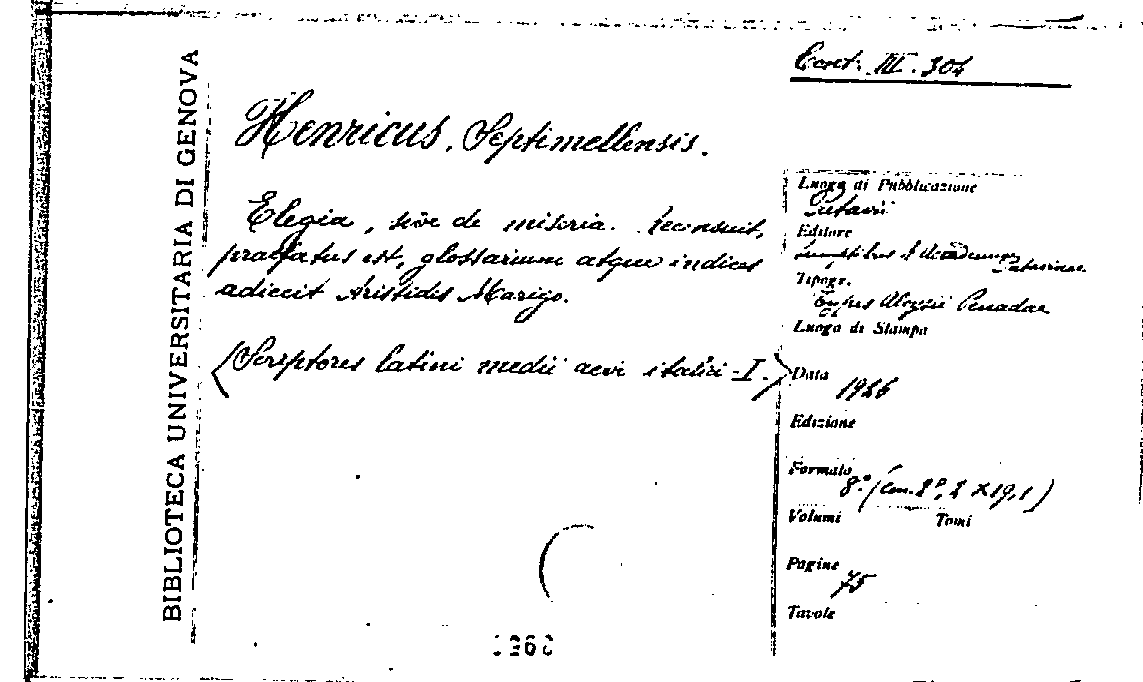 Cont. III. 304
BIBLIOTECA UNIVERSITARIA DI GENOVA
Henricus, Septimellensis.
Elegia, sive de miseria. Recensuit,
praefatus est, glossarium atque indices
adiecit Aristides Marigo.
(Scriptores latini medii aevi italici - I.)
Luogo di Pubblicazione
Patavii
Editore
sumptibus Academiae Patavinae
Tipogr.
Typis Aloysii Penadae
Luogo di Stampa
Data
1926
Edizione
Formato
8.° (cm.
Volumi Tomi
Pagine
75
Tavole